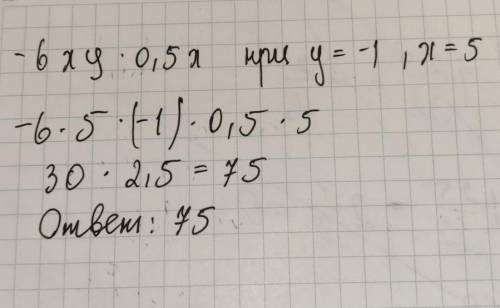 -6xy · 0,5x при y = -1 , x = 5
-6 · 5 · (-1) · 0,5 · 5
30 · 2,5 = 75
Ответ: 75